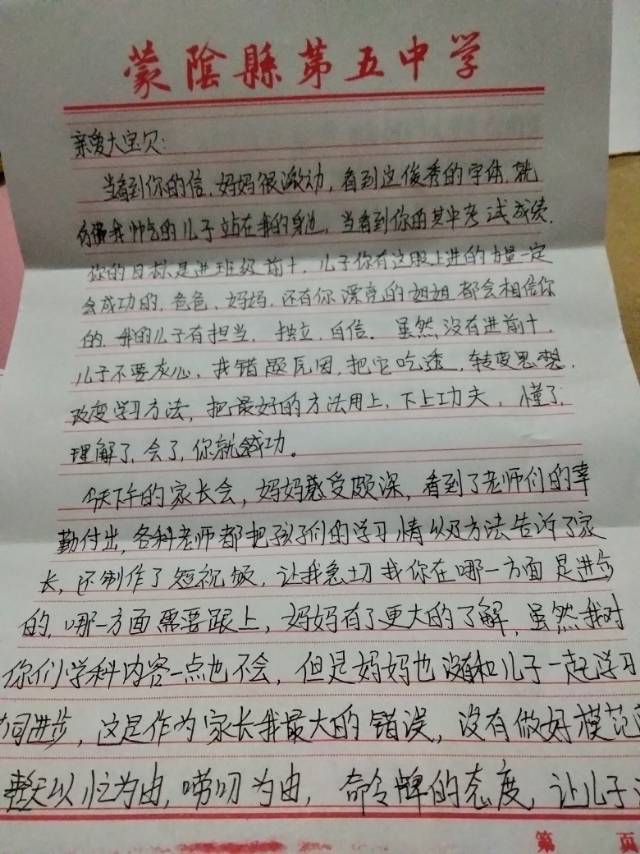 蒙陰縣第五中学
亲爱大宝贝:
当看到你的信,妈妈很激动,看到这俊秀的字体,就
我帅气的儿子站在我的身边,当看到你的其中考试成绩.
你的目标是进班级前十,儿子你有这股上进的力量一定
会成功的,爸爸、妈妈,还有你漂亮的姐姐都会相信你
的,我的儿子有担当,独立,自信。虽然没有进前十,
儿子不要灰心,我错题原因,把它吃透,转变思想,
改变学习方法,把最好的方法用上,下上工夫,懂了,
理解了,会了,你就成功。
今天下午的家长会,妈妈感受颇深,看到了老师们的辛
勤付出,各科老师都把孩子们的学习情以及方法告诉了家
长,还制作了短视频,让我我你在哪一方面是进步
的,哪一方面需要跟上,妈妈有了更大的了解,虽然我对
你们学科内容一点也不会,但是妈妈也没有和儿子一起学习
同进步,这是作为家长我最大的错误,没有做好模范
整天以忙为由,唠叨为由,命令牌的态度,让儿子
第 页